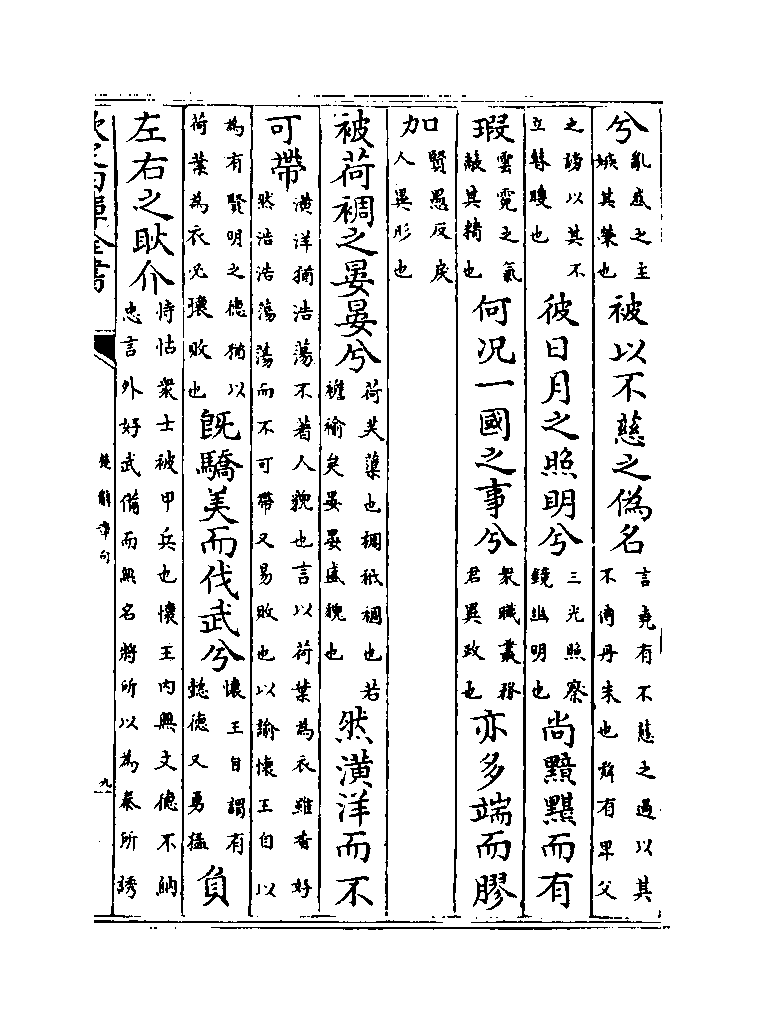 兮亂惑之主嫉其榮也被以不慈之偽名言堯有不慈之過以其不傳丹朱也舜有卑父
之謗以其不立瞽瞍也彼日月之照明兮三光照察鏡幽明也尚黯黮而有
瑕雲霓之氣蔽其精也何况一國之事兮衆職叢務君異政也亦多端而膠
加賢愚反戾人異形也
被荷裯之晏晏兮荷芙蕖也裯袛裯也若襜褕矣晏晏盛貌也然潢洋而不
可帶潢洋猶浩蕩不著人貌也言以荷葉為衣雖香好然浩浩蕩蕩而不可帶又易敗也以諭懷王自以
為有賢明之德猶以荷葉為衣必壞敗也既驕美而伐武兮懷王自謂有懿德又勇猛負
左右之耿介恃怙衆士被甲兵也懷王内無文德不納忠言外好武備而無名將所以為秦所誘
欽定四庫全書
楚辭章句
九